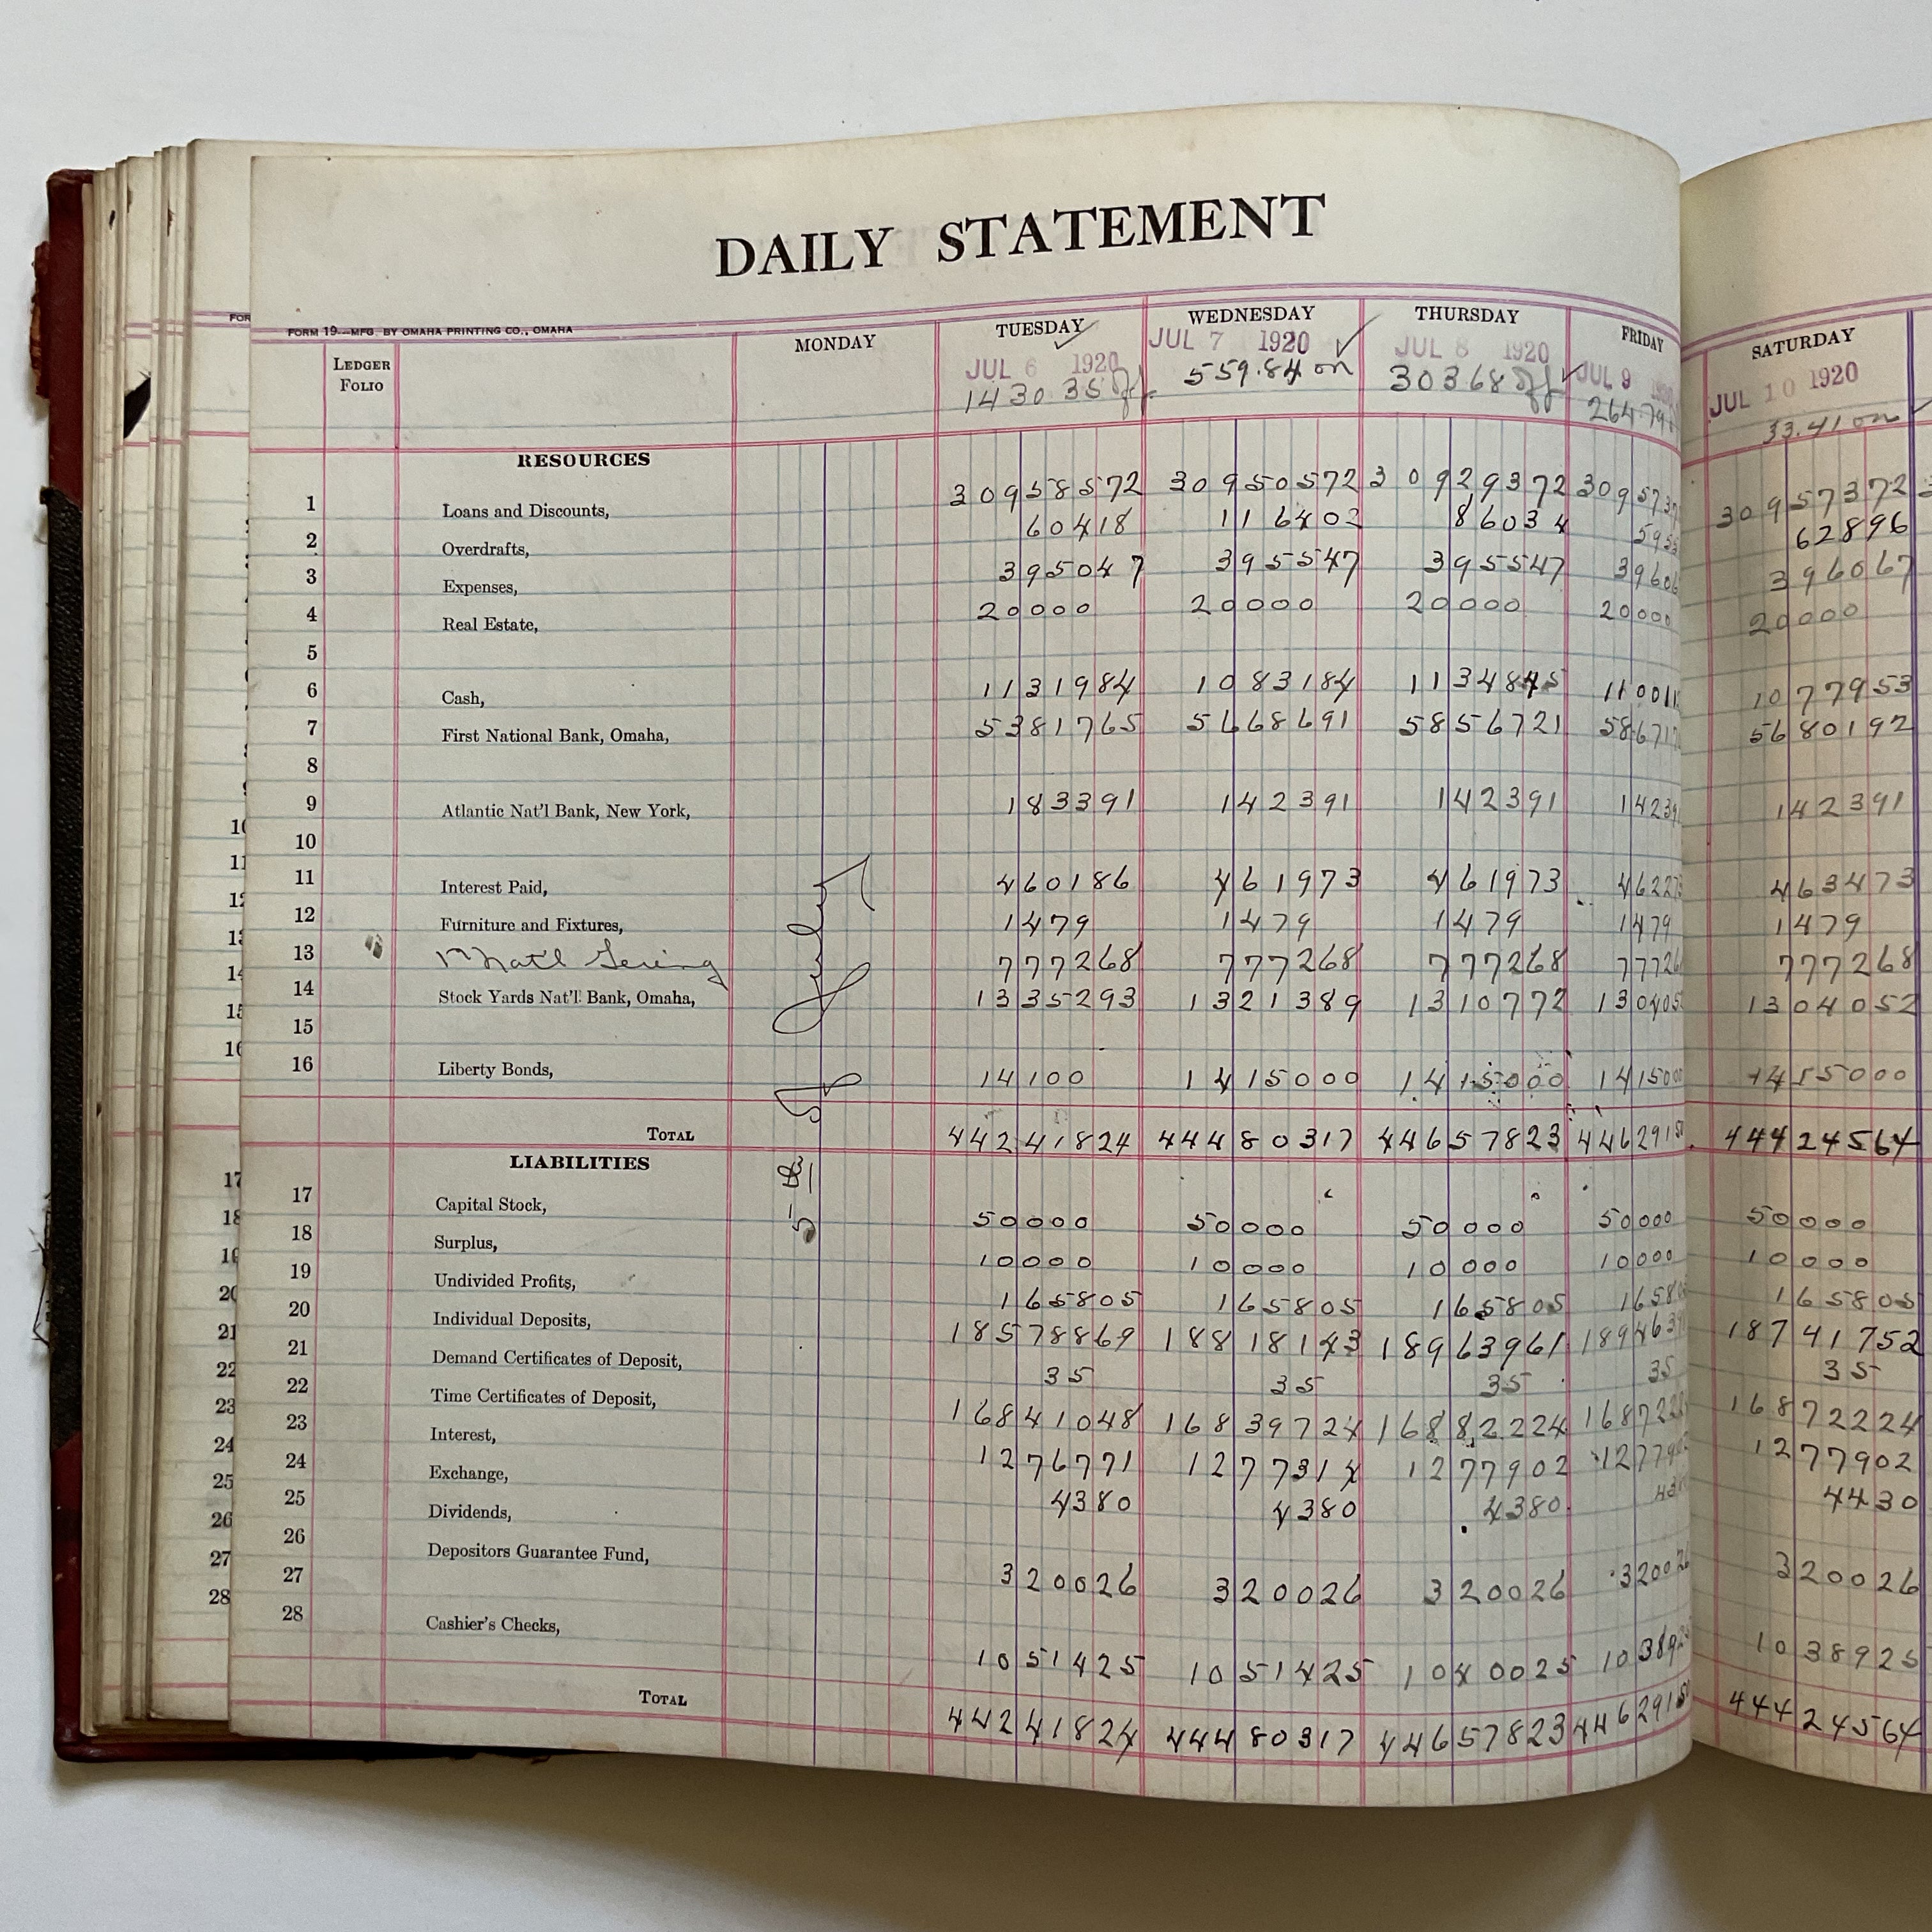 DAILY STATEMENT
FORM 19—MFG. BY OMAHA PRINTING CO., OMAHA
LEDGER FOLIO MONDAY TUESDAY WEDNESDAY THURSDAY FRIDAY SATURDAY
JUL 6 1920 JUL 7 1920 JUL 8 1920 JUL 9 JUL 10 1920
1430 35 off 559.84 on 30368 off 264.79 33.41 on
RESOURCES
1 Loans and Discounts, 30958572 30950572 30929372 3095737 30957372
2 Overdrafts, 60418 116402 86034 62896
3 Expenses, 395047 395547 395547 39606 396067
4 Real Estate, 20000 20000 20000 20000 20000
5
6 Cash, 1131984 1083184 1134845 110011 1077953
7 First National Bank, Omaha, 5381765 5668691 5856721 58671 5680192
8
9 Atlantic Nat'l Bank, New York, 183391 142391 142391 14239 142391
10
11 Interest Paid, 460186 461973 461973 46227 463473
12 Furniture and Fixtures, 1479 1479 1479 1479 1479
13 Nat'l Gering 777268 777268 777268 77726 777268
14 Stock Yards Nat'l Bank, Omaha, 1335293 1321389 1310772 130405 1304052
15
16 Liberty Bonds, 14100 1415000 1415000 141500 1415000
TOTAL 44241824 44480317 44657823 4462915 44424564
Sunday
LIABILITIES
17 Capital Stock, 50000 50000 50000 50000 50000
18 Surplus, 10000 10000 10000 10000 10000
19 Undivided Profits, 165805 165805 165805 1658 165805
20 Individual Deposits, 18578869 18818143 18963961 189463 18741752
21 Demand Certificates of Deposit, 35 35 35 35 35
22 Time Certificates of Deposit, 16841048 16839724 16882224 168722 16872224
23 Interest, 1276771 1277314 1277902 12779 1277902
24 Exchange, 4380 4380 4380 4430
25 Dividends,
26 Depositors Guarantee Fund, 320026 320026 320026 3200 320026
27
28 Cashier's Checks, 1051425 1051425 1040025 10389 1038925
TOTAL 44241824 44480317 44657823 4462915 44424564
FOR
10
11
12
13
14
15
16
17
18
19
20
21
22
23
24
25
26
27
28